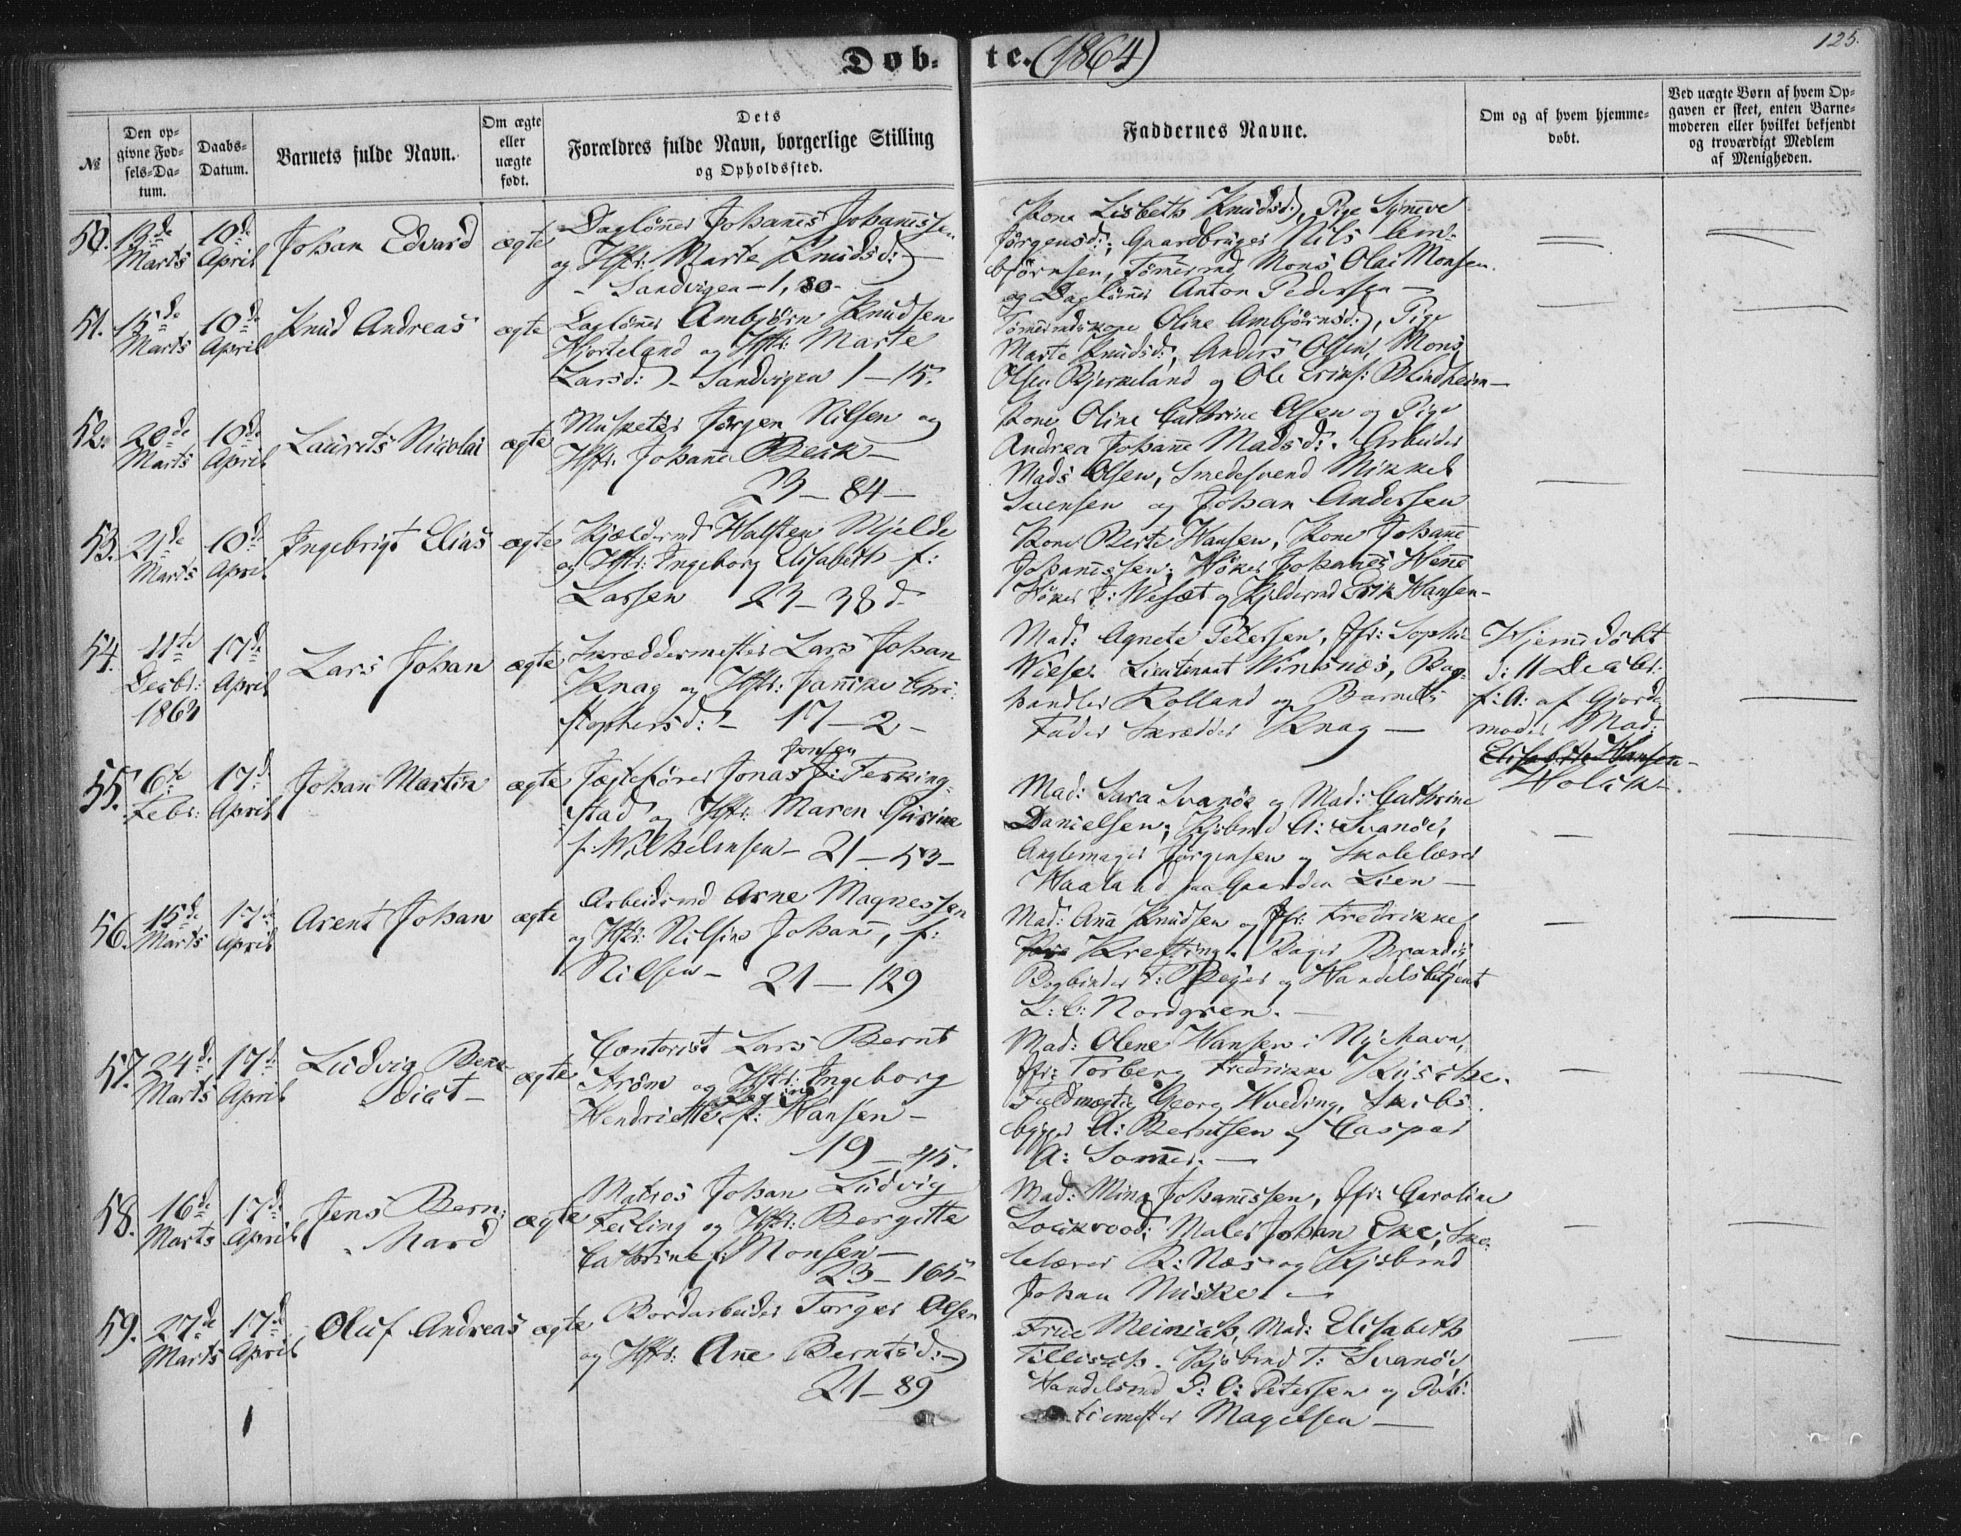 Døb-te. (1864)
125.
№
Den op-
givne Fød-
sels-Da-
tum.
Daabs-
Datum.
Barnets fulde Navn.
Om ægte
eller
uægte
født.
Dets
Forældres fulde Navn, borgerlige Stilling
og Opholdssted.
Faddernes Navne.
Om og af hvem hjemme-
døbt.
Ved uægte Børn af hvem Op-
gaven er skeet, enten Barne-
moderen eller hvilket bekjendt
og troværdigt Medlem
af Menigheden.
50. 13de Marts
10de April
Johan Edvard
ægte
Daglønner Johannes Johannessen
og Hstr: Marte Knudsd:
Sandvigen – 1, 80 –
Kone Lisbeth Knudsd:, Pige Synneve
Jørgensd:, Gaardbruger Nils Am-
bjørnsen, Tømmermd Mons Olai Monsen
og Daglønner Anton Pedersen –
51. 15de Marts
10de April
Knud Andreas
ægte
Daglønner Ambjørn Knudsen
Hjorteland og Hstr: Marte
Larsd: – Sandvigen 1 – 15.
Tømmermdskone Oline Ambjørnsd:, Pige
Marte Knudsd:, Anders Olsen, Mons
Olsen Bjerkeland og Ole Eriks: Blindheim –
52. 20de Marts
10de April
Laurits Nicolai
ægte
Musketer Jørgen Nilsen og
Hstr: Johanne Beck –
23 – 84 –
Kone Oline Cathrine Olsen og Pige
Andrea Johanne Madsd:. Arbeider
Mads Olsen, Smedesvend Mikkel
Svensen og Johan Andersen
53. 21de Marts
10de April
Ingebrigt Elias
ægte
Kjældermd Halsten Mjelde
og Hstr: Ingeborg Elisabeth f:
Larsen 23 – 38 d –
Kone Berte Hansen, Kone Johanne
Johannessen, Høker Johannes Henne
Høker Wesæt og Kjeldermd Erik Hansen –
54. 11te Decbr: 1863
17de April
Lars Johan
ægte
Skræddermester Lars Johan
Knag og Hstr: Jannike Chri-
stophersd: – 17 – 2 –
Mad: Agnete Petersen, Jfr: Sophie
Wiese. Lieutenant Winsnæs, Bog-
handler Rolland og Barnets
Fader Skrædder Knag –
Hjemmedøbt
d: 11 Decbr:
f: A: af Gjorde
moder Mad:
Elisabeth Hansen
Holck –
55. 6te Febr:
17de April
Johan Martin
ægte
Jonsen
Jægtefører Jonas Ferking-
stad og Hstr: Maren Gurine
f: Wilhelmsen – 21 – 53 –
Mad: Sara Svanøe og Mad: Cathrine
Danielsen, Kjøbmd A: Svanøe,
Anglemager Jørgensen og Skolelærer
Haaland paa Gaarden Lien –
56. 15de Marts
17de April
Arent Johan
ægte
Arbeidsmd Arne Magnessen
og Hstr: Nilsine Johanne, f:
Nilsen – 21 – 129
Mad: Anna Knudsen og Jfr: Fredrikke
Krefting. Bager Brandis
Bogbinder T: Beyer og Handelsbetjent
L: C: Nordgreen. –
57. 24de Marts
17de April
Ludvig Bene-
dict –
ægte
Contorist Lars Bernt
Strøm og Hstr: Ingeborg
Hendriette f: Hansen –
19 – 45.
Mad: Olene Hansen i Nyhavn,
Jfr: Torberg Fredrikke Küsche.
Fuldmægtig Georg Hveding, Skibs
bygger A: Berntsen og Caspar
A: Sommer. –
58. 16de Marts
17de April
Jens Bern-
Hard
ægte
Matros Johan Ludvig
Feiling og Hstr: Bergitte
Cathrine f: Monsen –
23 – 165 –
Mad: Mina Johannessen, Jfr: Caroline
Lockvood, Maler Johan Eke, Sko-
lelærer R: Næs og Kjøbmd
Johan Miske. –
59. 27de Marts
17de April
Oluf Andreas
ægte
Bordarbeider Torger Olsen
og Hstr: Ane Berntsd: –
21 – 89
Frue Meinich, Mad: Elisabeth
Tillisch. Kjøbmd T: Svanøe,
Handelsmd P: C: Petersen og Poli-
tiemester Magelsen –